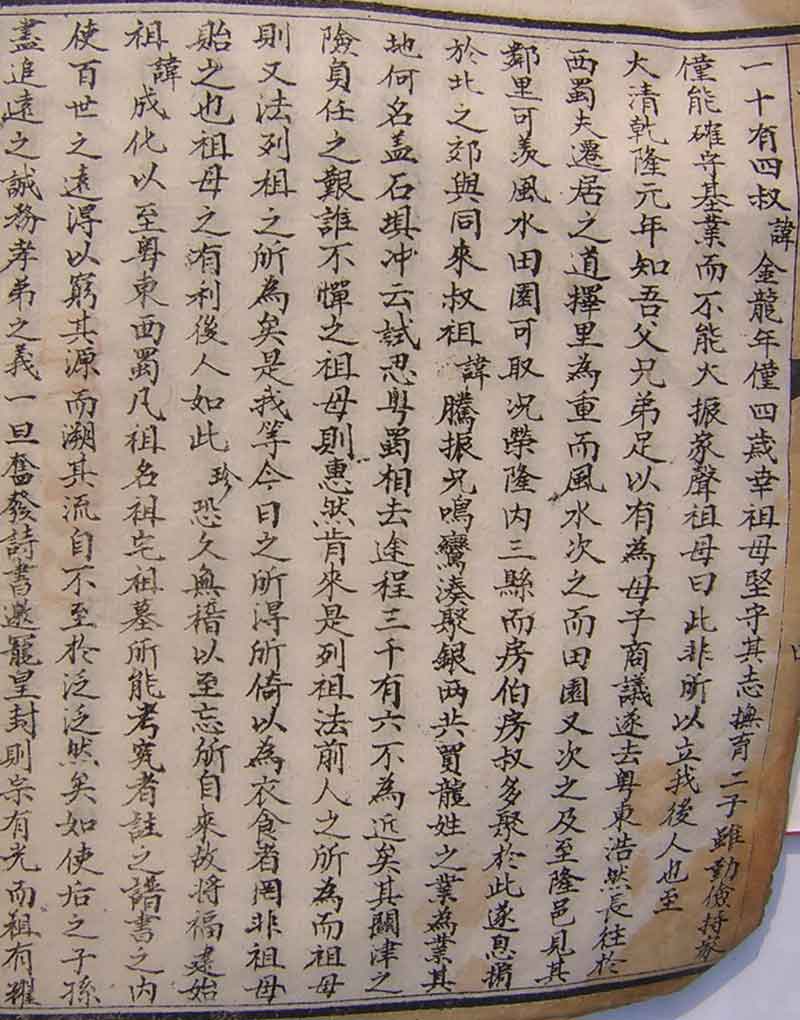 一十有四叔諱金龍年僅四歲幸祖母堅守其志撫育二子雖勤儉持家
僅能確守基業而不能大振家聲祖母曰此非所以立我後人也至
大清乾隆元年知吾父兄弟足以有為母子商議遂去粵東浩然長往於
西蜀夫遷居之道擇里為重而風水次之而田園又次之及至隆邑見其
鄰里可羨風水田園可取況榮隆內三縣而房伯房叔多聚於此遂息擔
於北之郊與同來叔祖諱騰振兄鳴鸞湊聚銀兩共買龍姓之業為業其
地何名盖石填冲云試忍粵蜀相去途程三千有六不為近矣其關津之
險負任之艱誰不憚之祖母則惠然肯來是列祖法前人之所為而祖母
則又法列祖之所為矣是我等今日之所得所倚以為衣食者罔非祖母
貽之也祖母之有利後人如此珍恐久無稽以至忘所自來故將福建始
祖諱成化以至粵東西蜀凡祖名祖宅祖墓所能考究者註之譜書之內
使百世之遠得以窮其源而溯其流自不至於泛泛然矣如使后之子孫
盡追遠之誠務孝弟之義一旦奮發詩書邀寵皇封則宗有光而祖有耀